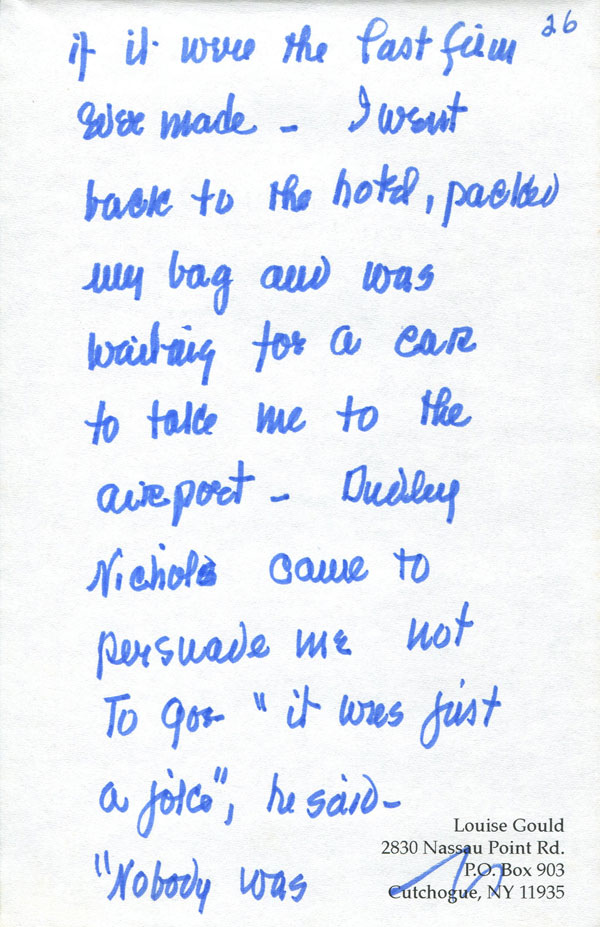 26
if it were the last film
ever made - I went
back to the hotel, packed
my bag and was
waiting for a car
to take me to the
airport - Dudley
Nichols came to
persuade me not
To go - "it was just
a joke", he said -
"Nobody was
Louise Gould
2830 Nassau Point Rd.
P.O. Box 903
Cutchogue, NY 11935